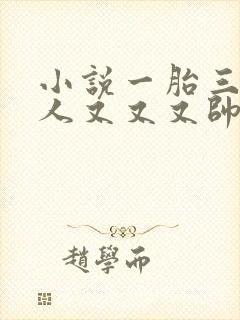 小說一胎三
人又又又帥
趙學而